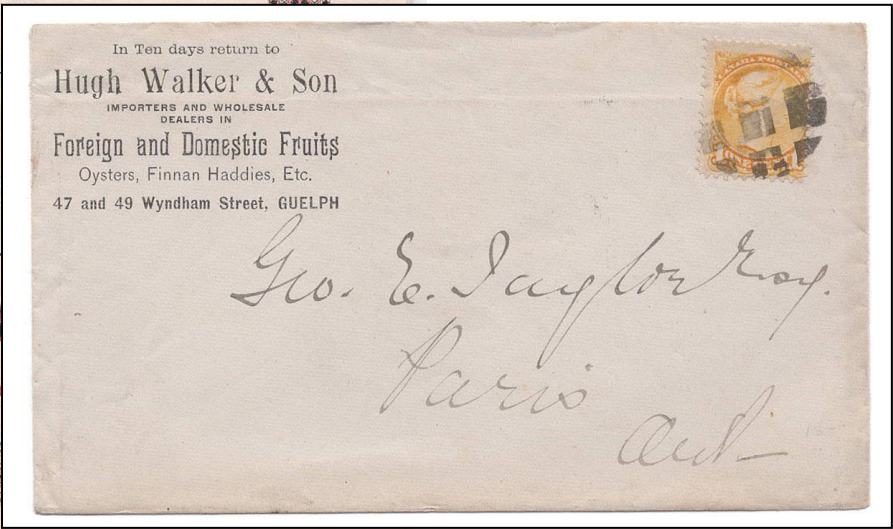 In Ten days return to
Hugh Walker & Son
IMPORTERS AND WHOLESALE
DEALERS IN
Foreign and Domestic Fruits
Oysters, Finnan Haddies, Etc.
47 and 49 Wyndham Street, GUELPH
CANADA POSTAGE
Geo. E. Taylor Esq.
Paris
Ont